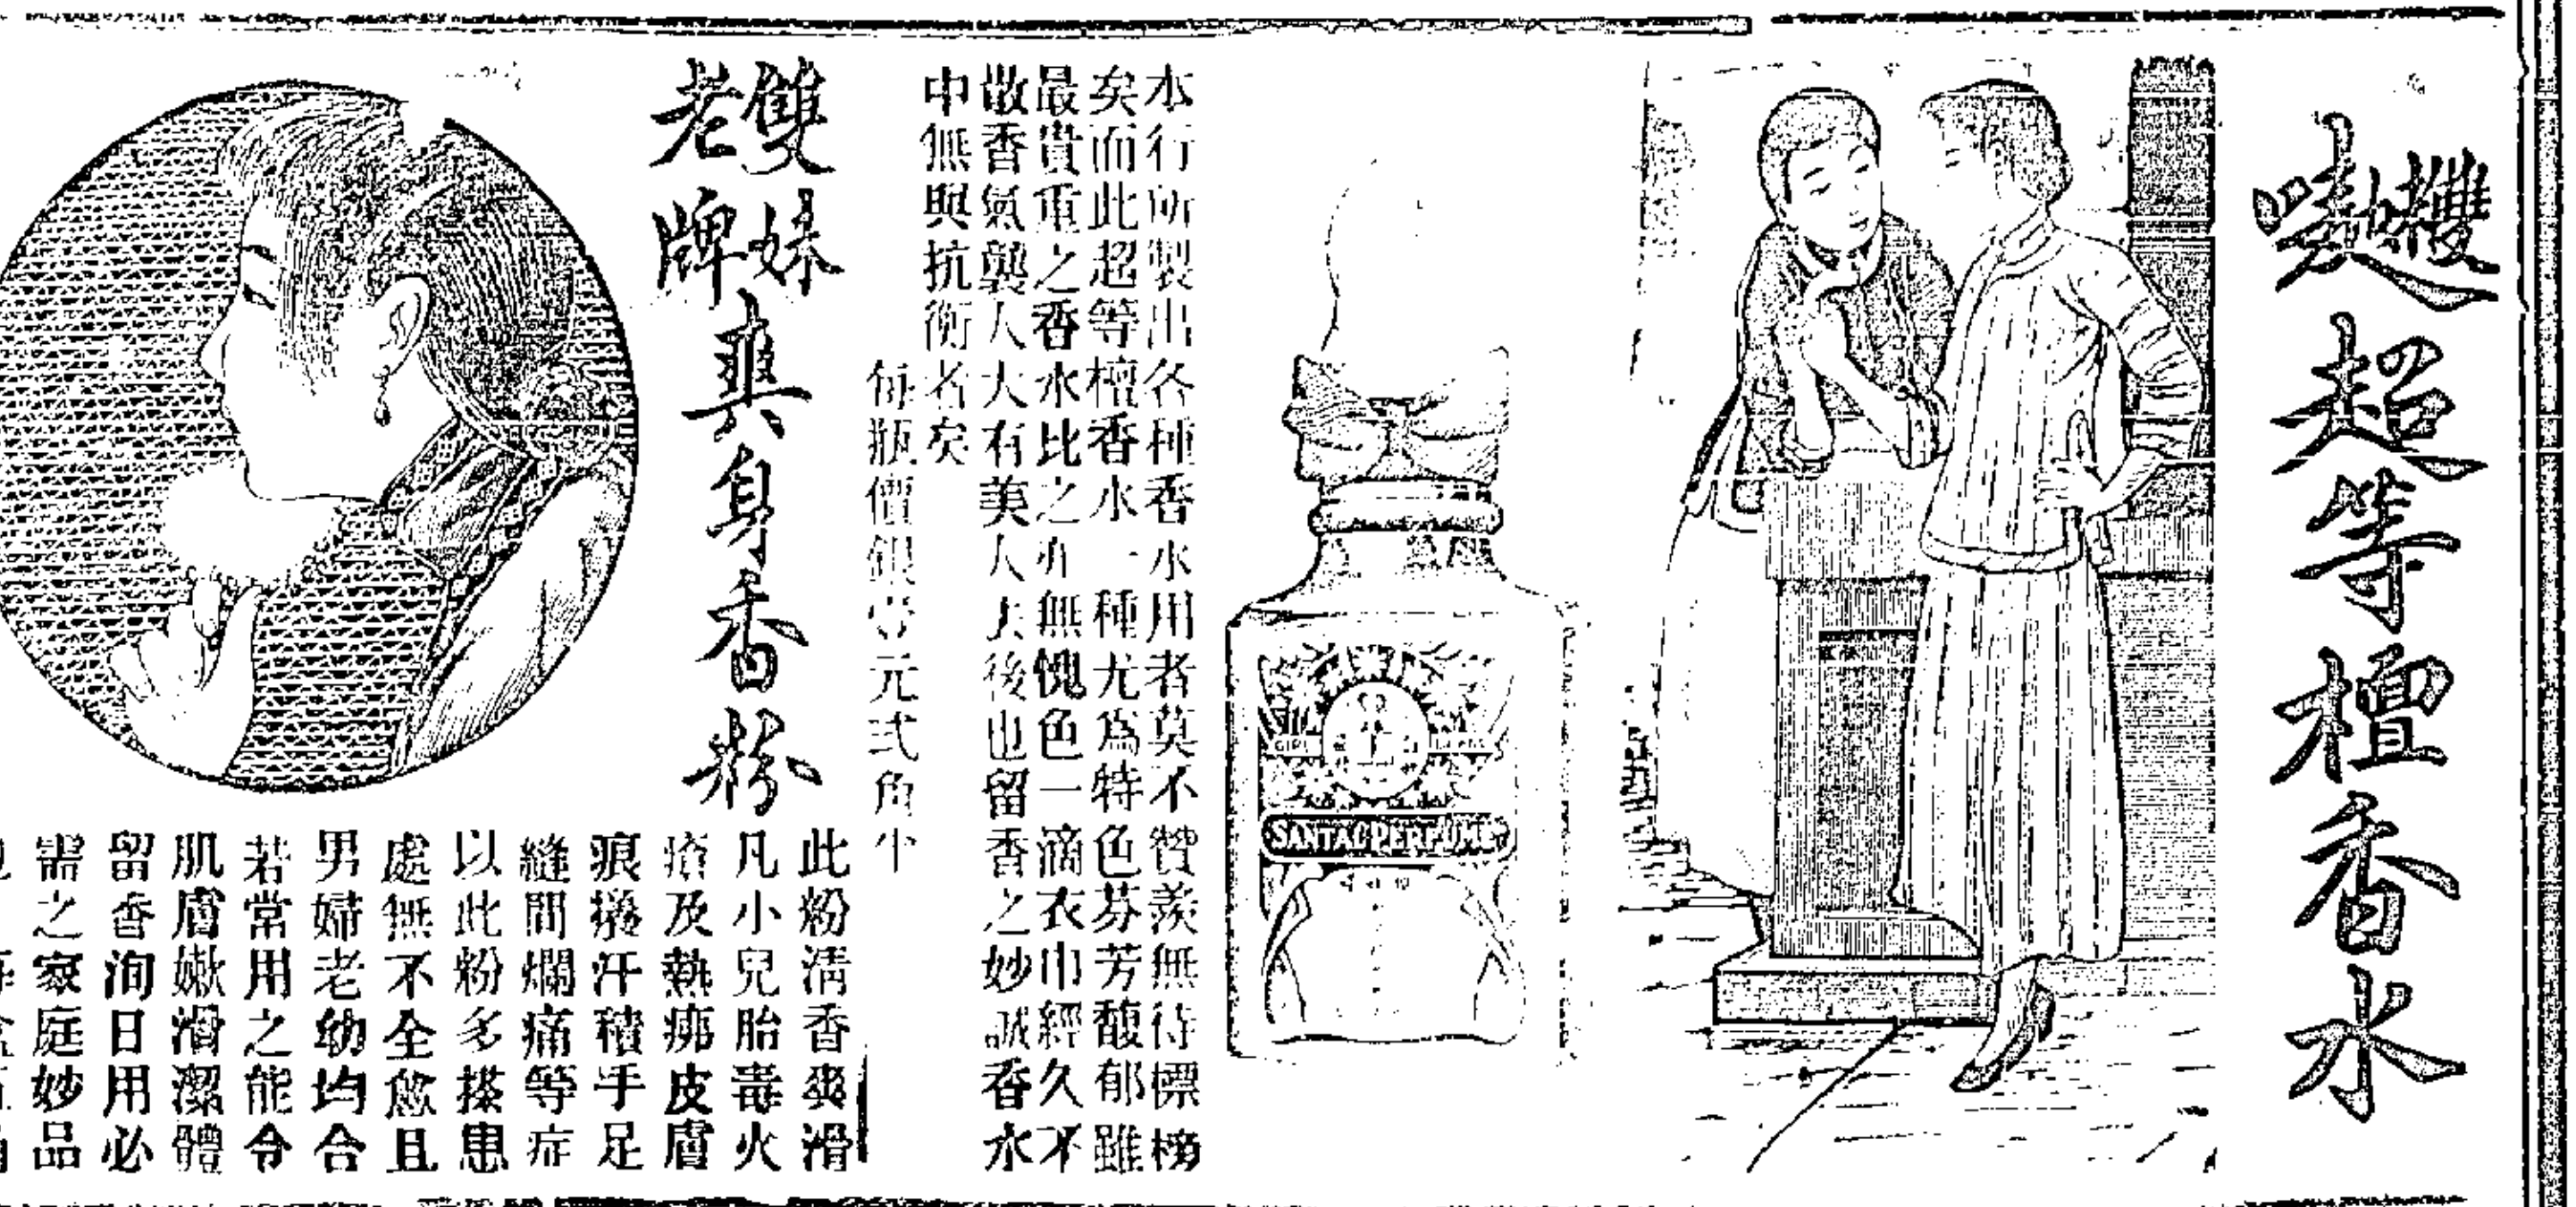 雙妹嘜超等檀香水
本行所製出各種香水用者莫不贊羨無待標榜
矣而此超等檀香水一種尤爲特色芬芳馥郁雖
最貴重之香水比之亦無愧色一滴衣巾經久不
散香氣襲人大有美人去後也留香之妙誠香水
中無與抗衡者矣
每瓶價銀壹元弍角半
GIRL
SANTAL PERFUME
雙妹
老牌
爽身香粉
此粉清香爽滑
凡小兒胎毒火
瘡及熱痱皮膚
痕癢汗積手足
縫間爛痛等症
以此粉多搽患
處無不全愈且
男婦老幼均合
若常用之能令
肌膚嫩滑潔體
留香洵日用必
需之家庭妙品